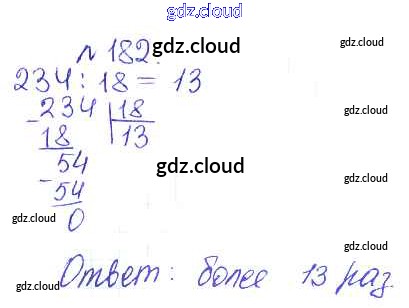 gdz.cloud
№ 182.
gdz.cloud
gdz.cloud
234 : 18 = 13
gdz.cloud
- 234 | 18
18 | 13
gdz.cloud
54
gdz.cloud
- 54
gdz.cloud
gdz.cloud
0
gdz.cloud
Ответ: более 13 раз.
gdz.cloud